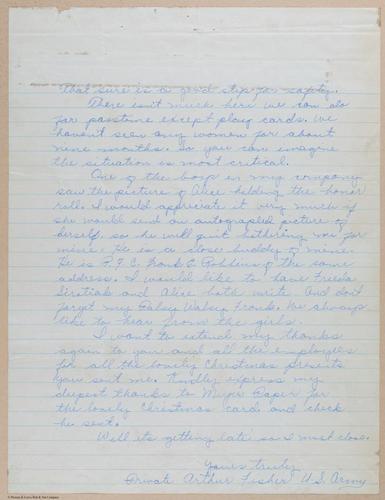 That sure is a good step for safety.
There isn't much here we can do
for passtime except play cards. We
haven't seen any women for about
nine months. So you can imagine
the situation is most critical.
One of the boys in my company
saw the picture of Alice holding the honor
roll. I would appreciate it very much if
she would send an autographed picture of
herself, so he will quit bothering you for
mine. He is a close buddy of mine.
He is P.F.C. Frank E. Robbins of the same
address. I would like to have Freida
and Alice both write. And don't
forget my Patsy Walsy Frank. We always
like to hear from the girls.
I want to extend my thanks
again to you and all the employees
for all the lovely Christmas presents
you sent me. Kindly express my
deepest thanks to Meyer Paper for
the lovely Christmas card and check
he sent.
Well its getting late so I must close.
Yours truly
Private Arthur Fisher U.S. Army